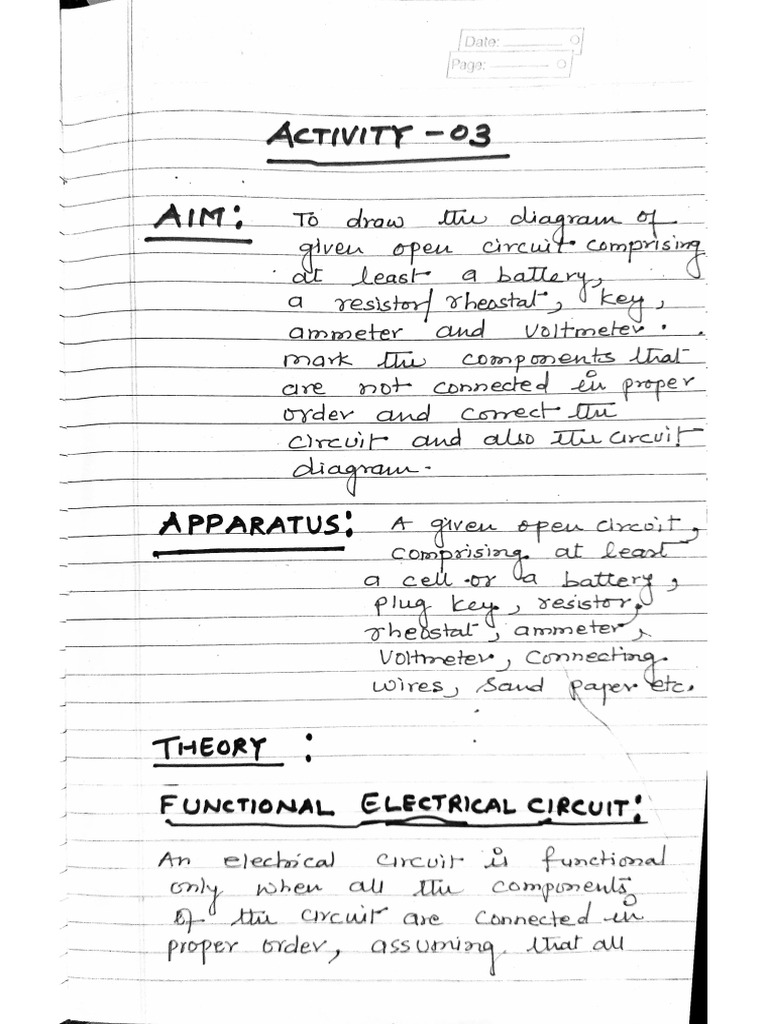 Date:
Page:
ACTIVITY - 03
AIM: To draw the diagram of
given open circuit comprising
at least a battery,
a resistor/rheostat, key,
ammeter and voltmeter.
mark the components that
are not connected in proper
order and correct the
circuit and also the circuit
diagram.
APPARATUS: A given open circuit,
comprising at least
a cell or a battery,
plug key, resistor,
rheostat, ammeter,
Voltmeter, Connecting
wires, Sand paper etc.
THEORY :
FUNCTIONAL ELECTRICAL CIRCUIT:
An electrical circuit is functional
only when all the components
of the circuit are connected in
proper order, assuming that all